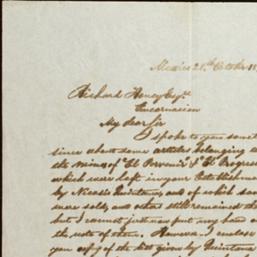 Mexico 26th October 18
Richard Honey Esqr.
Encarnacion
My dear Sir
I spoke to you some
since about some articles belonging
the mines of "El Porvenir" & "El Progres
which were left in your Establishme
by Nicasio Quintana and of which so
were sold, and others still remained the
but I cannot just now put my hand
the note of them. However I enclose
you copy of the list given by Quintana